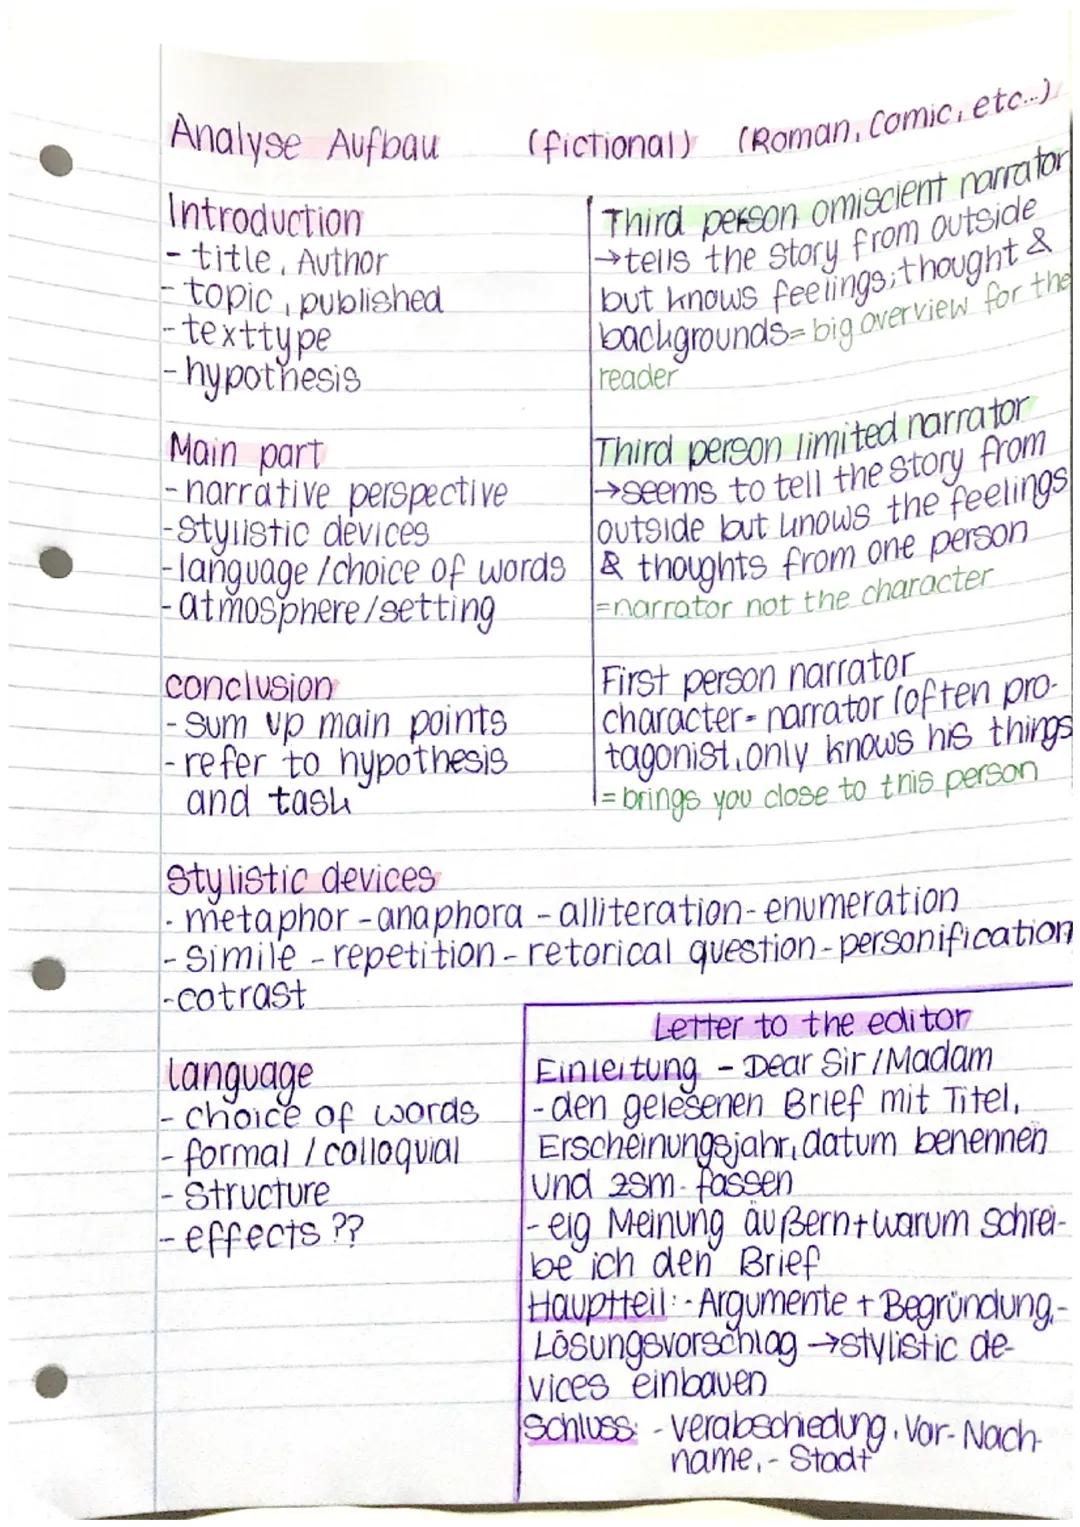 Analyse Aufbau (fictional) (Roman, Comic, etc...)
Introduction
- title, Author
- topic, published
- texttype
- hypothesis
Main part
- narrative perspective
- stylistic devices
- language/choice of words
- atmosphere/setting
conclusion
- sum up main points
- refer to hypothesis
and task
Third person omiscient narrator
→tells the story from outside
but knows feelings, thought &
backgrounds= big overview for the
reader
Third person limited narrator
→seems to tell the story from
outside but knows the feelings
& thoughts from one person
=narrator not the character
First person narrator
character= narrator (often pro-
tagonist, only knows his things
= brings you close to this person
Stylistic devices
- metaphor - anaphora - alliteration - enumeration
- simile - repetition - retorical question - personification
- cotrast
language
- choice of words
- formal / colloquial
- structure
- effects ??
Letter to the editor
Einleitung - Dear Sir/Madam
- den gelesenen Brief mit Titel,
Erscheinungsjahr, datum benennen
und zsm. fassen
- eig Meinung äußern + warum schrei-
be ich den Brief
Hauptteil: - Argumente + Begründung, -
Lösungsvorschlag → stylistic de-
vices einbauen
Schluss: - verabschiedung, Vor- Nach-
name, - Stadt